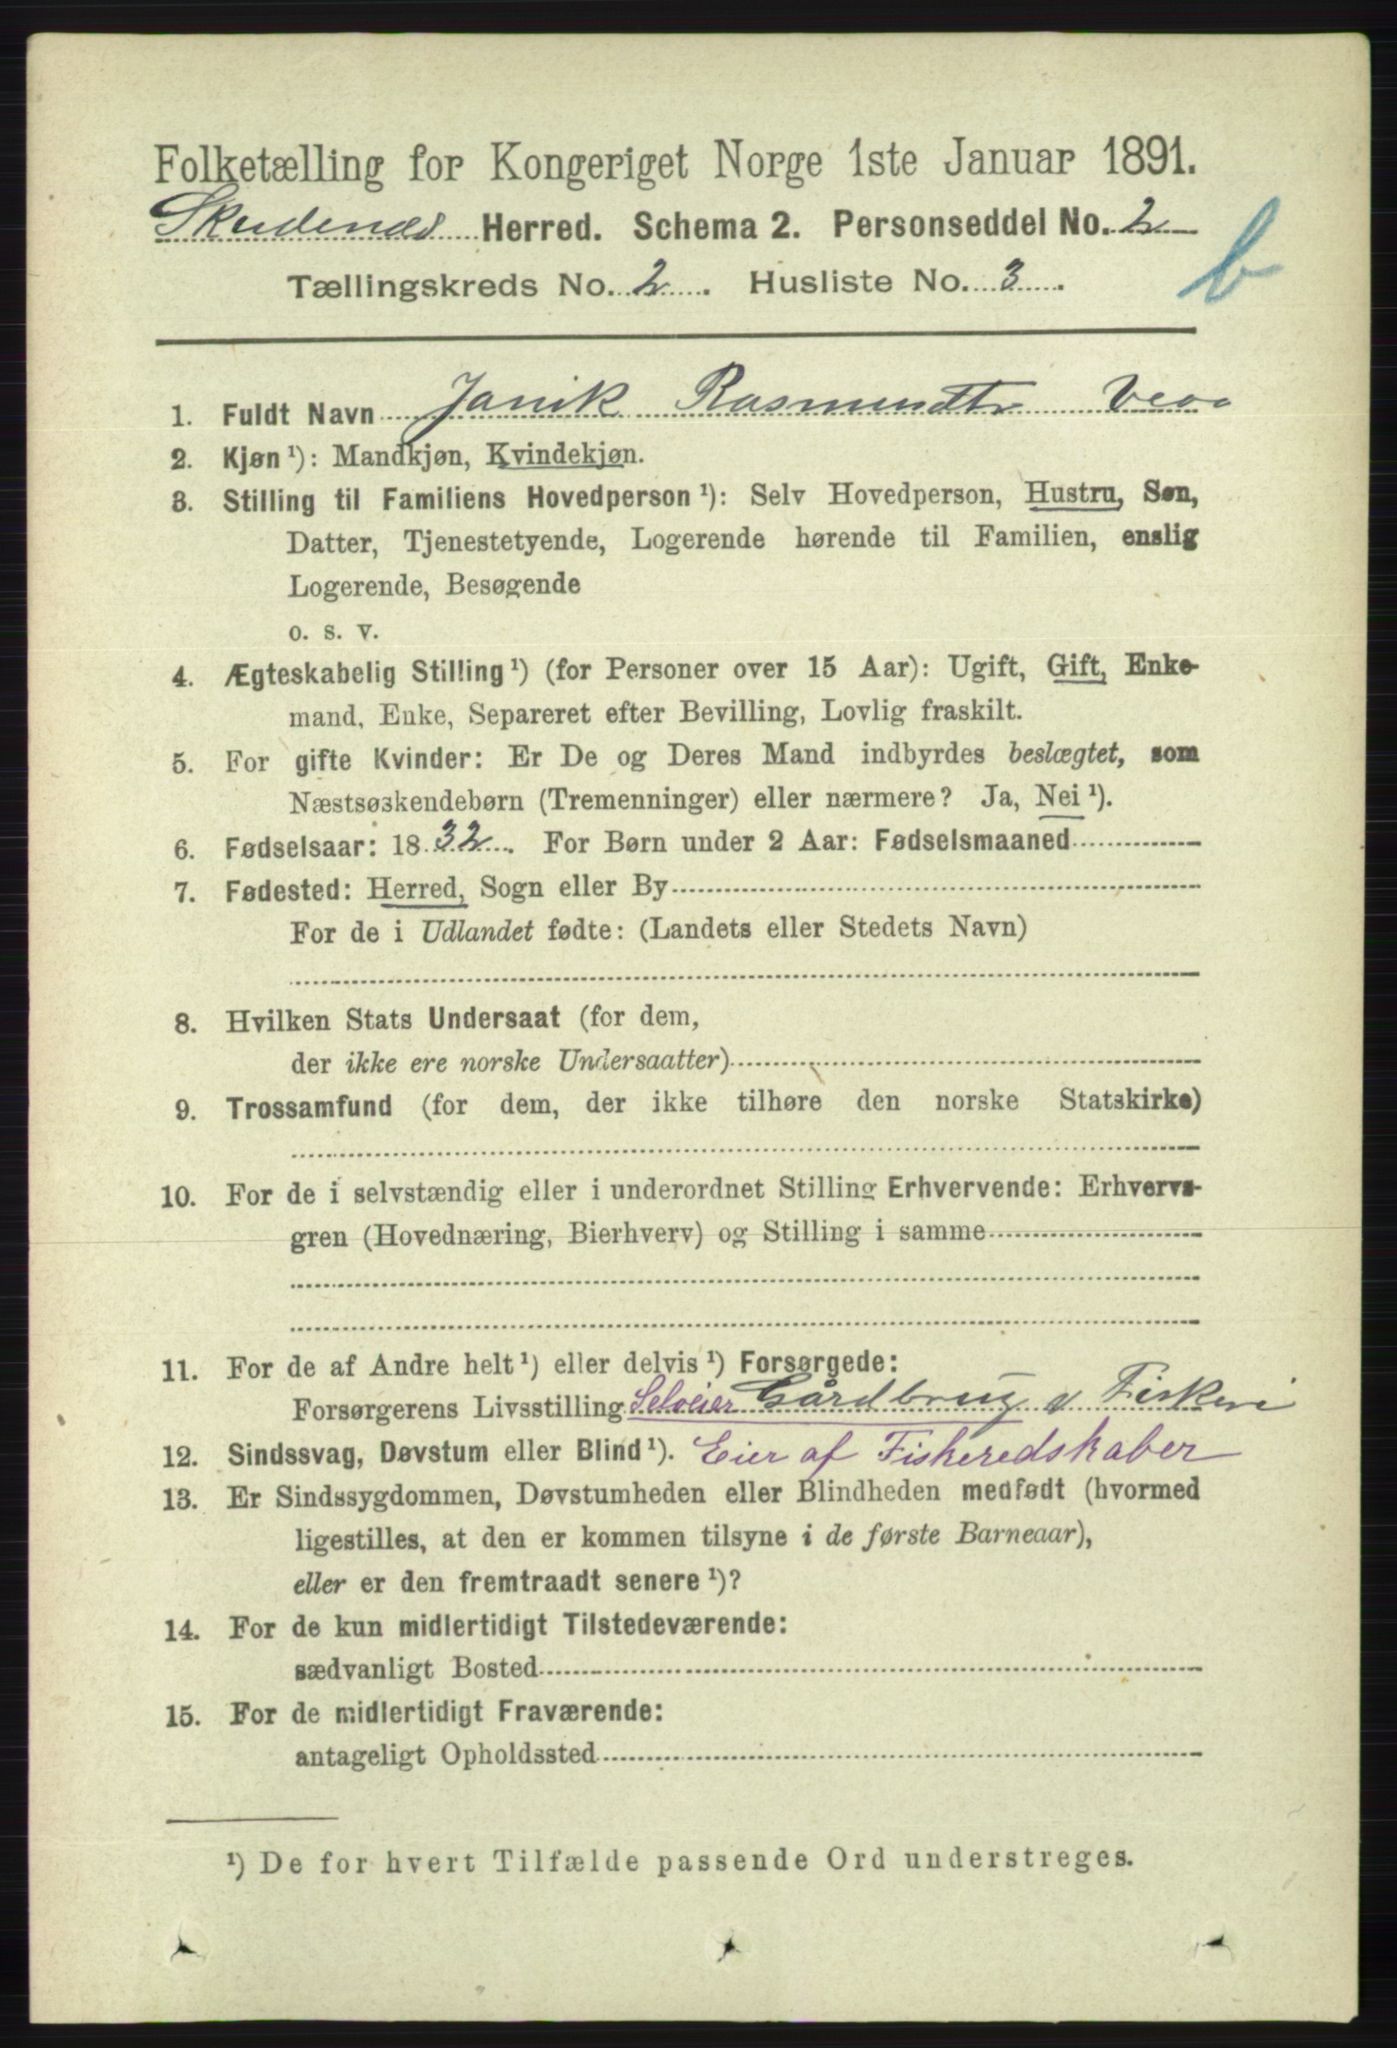 Folketælling for Kongeriget Norge 1ste Januar 1891.
Skudenæs Herred. Schema 2. Personseddel No. 2
Tællingskreds No. 2. Husliste No. 3.
b
1. Fuldt Navn Janik Rasmusdtr
2. Kjøn ¹): Mandkjøn, Kvindekjøn.
3. Stilling til Familiens Hovedperson ¹): Selv Hovedperson, Hustru, Søn,
Datter, Tjenestetyende, Logerende hørende til Familien, enslig
Logerende, Besøgende
o. s. v.
4. Ægteskabelig Stilling ¹) (for Personer over 15 Aar): Ugift, Gift, Enke-
mand, Enke, Separeret efter Bevilling, Lovlig fraskilt.
5. For gifte Kvinder: Er De og Deres Mand indbyrdes beslægtet, som
Næstsøskendebørn (Tremenninger) eller nærmere? Ja, Nei ¹).
6. Fødselsaar: 1832. For Børn under 2 Aar: Fødselsmaaned
7. Fødested: Herred, Sogn eller By
For de i Udlandet fødte: (Landets eller Stedets Navn)
8. Hvilken Stats Undersaat (for dem,
der ikke ere norske Undersaatter)
9. Trossamfund (for dem, der ikke tilhøre den norske Statskirke)
10. For de i selvstændig eller i underordnet Stilling Erhvervende: Erhvervs-
gren (Hovednæring, Bierhverv) og Stilling i samme
11. For de af Andre helt ¹) eller delvis ¹) Forsørgede:
Forsørgerens Livsstilling Selveier Gårdbrug & Fiskeri
12. Sindssvag, Døvstum eller Blind ¹). Eier af Fiskeredskaber
13. Er Sindssygdommen, Døvstumheden eller Blindheden medfødt (hvormed
ligestilles, at den er kommen tilsyne i de første Barneaar),
eller er den fremtraadt senere ¹)?
14. For de kun midlertidigt Tilstedeværende:
sædvanligt Bosted
15. For de midlertidigt Fraværende:
antageligt Opholdssted
¹) De for hvert Tilfælde passende Ord understreges.